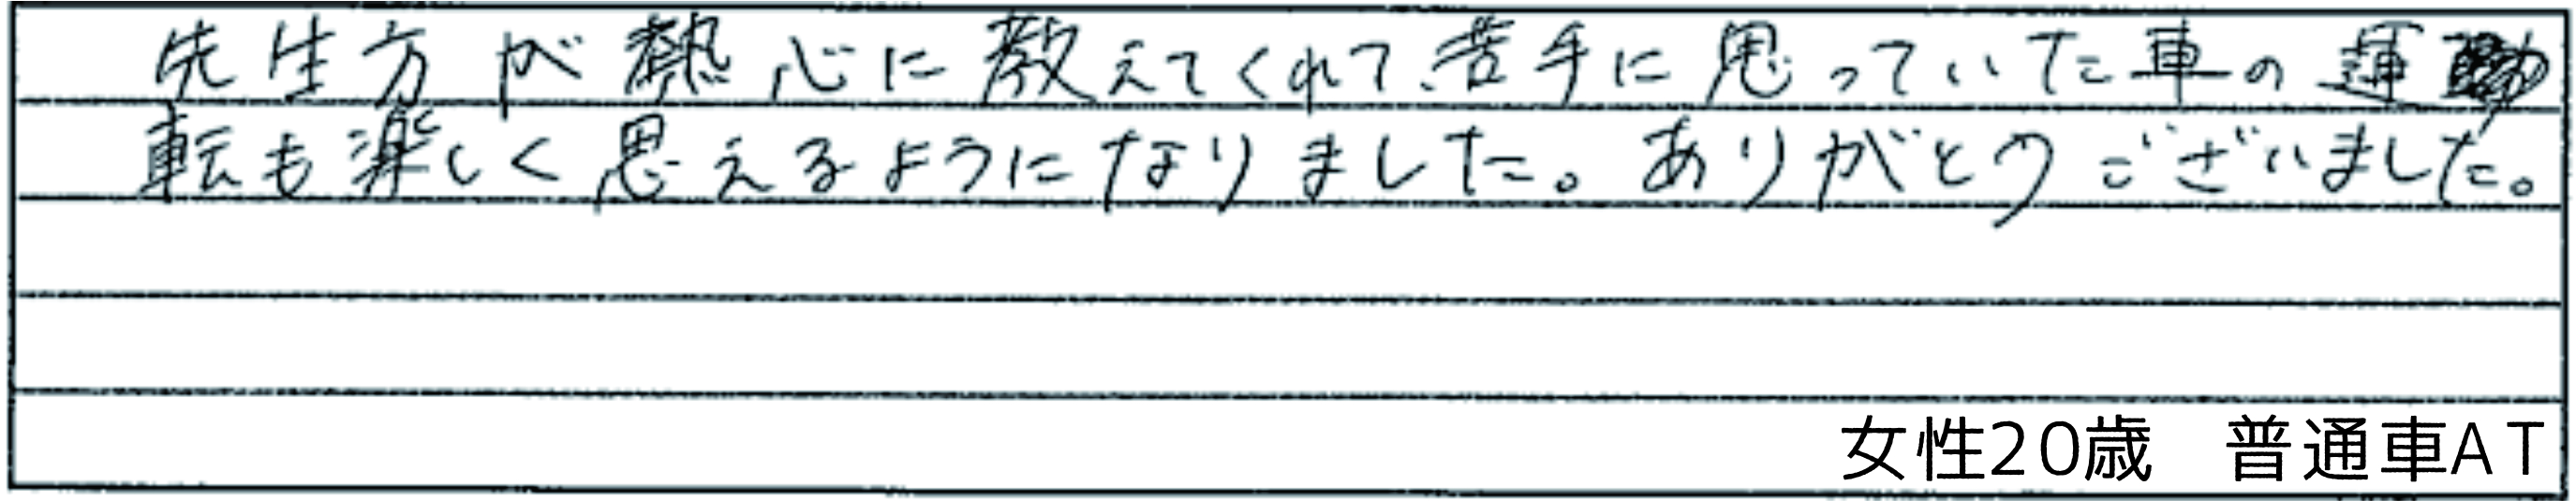 先生方が熱心に教えてくれて、苦手に思っていた車の運
転も楽しく思えるようになりました。ありがとうございました。
女性20歳 普通車AT